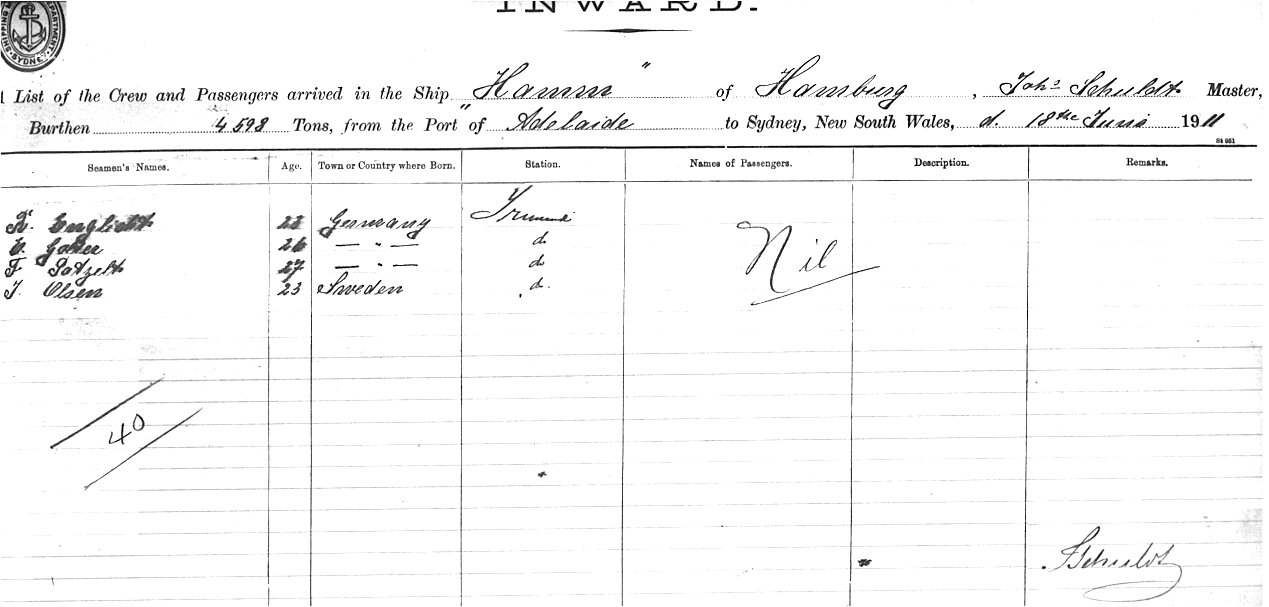 INWARD.
SHIPPING DEPARTMENT SYDNEY
List of the Crew and Passengers arrived in the Ship "Hamm" of Hamburg, Johs Schuldt Master,
Burthen 4598 Tons, from the Port of Adelaide to Sydney, New South Wales, d. 18the Juni 1911
St 951
Seamen's Names. Age. Town or Country where Born. Station. Names of Passengers. Description. Remarks.
22 Germany
26 — " — d
F Patzelt 27 — " — do
J. Olsen 23 Sweden do.
Nil
40
JSchuldt